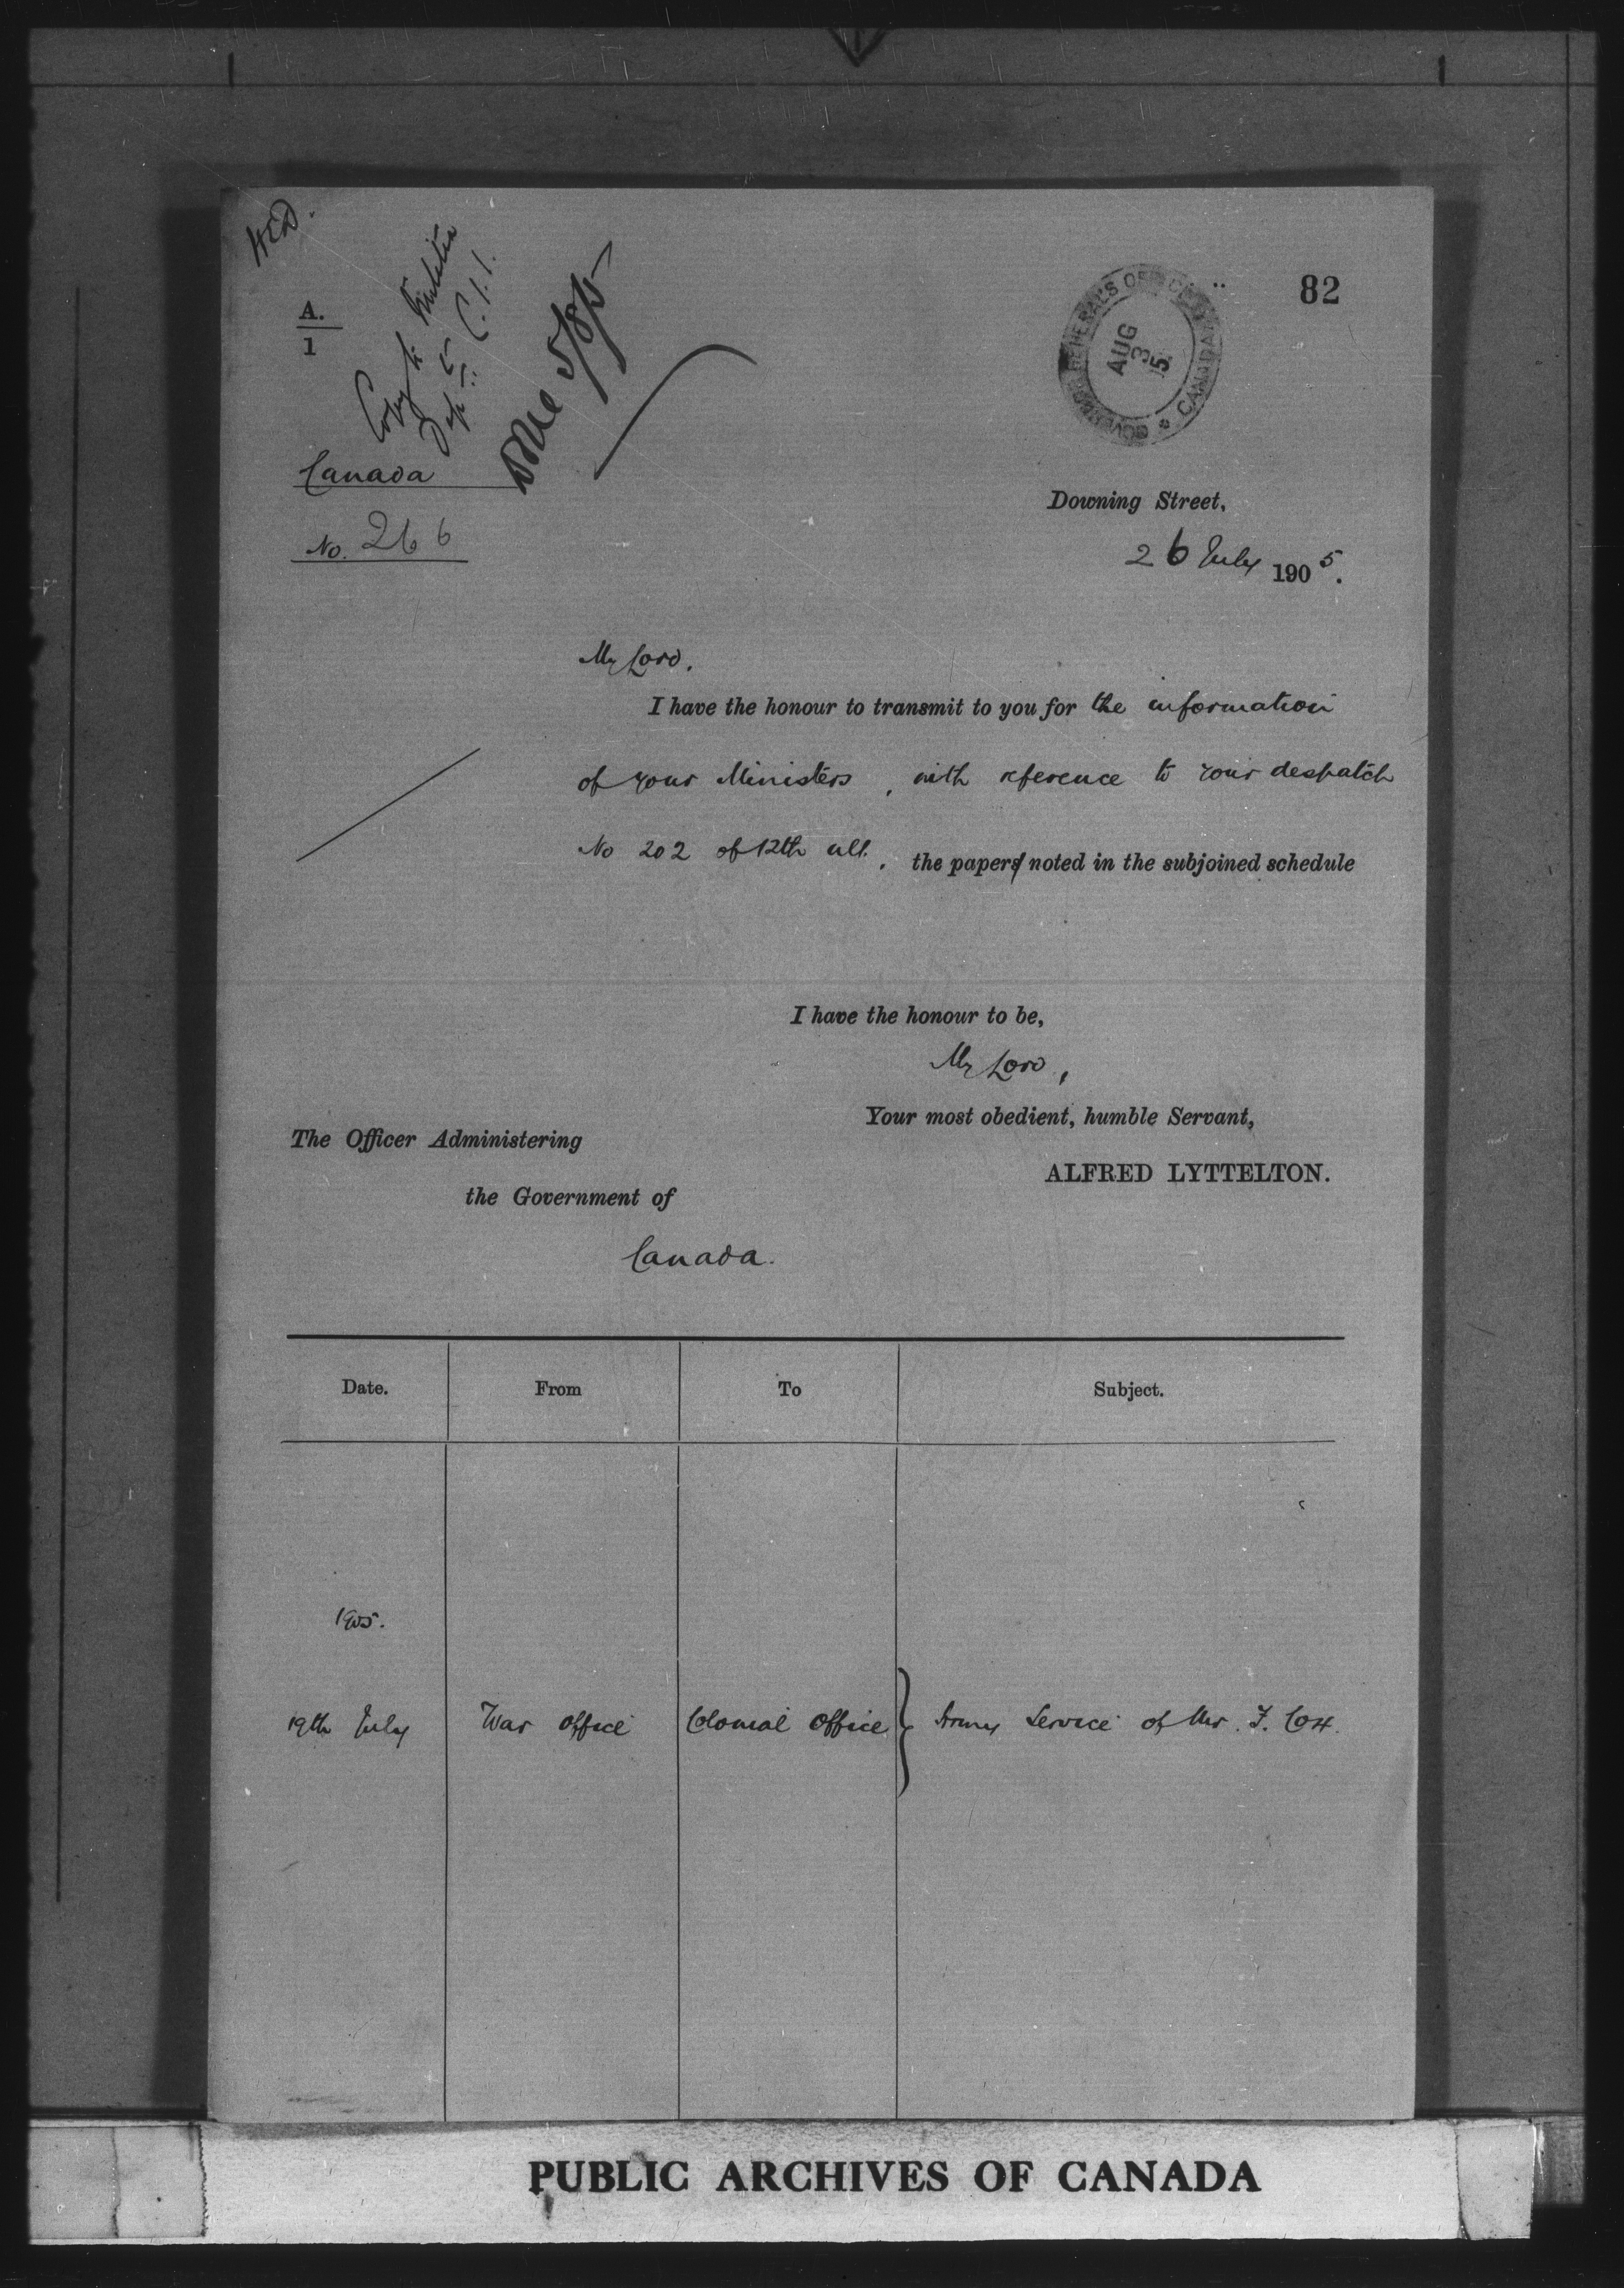 82
A.
1
Copy to Militia
Dept.
Done 5/8/5
GOVERNOR GENERAL'S OFFICE CANADA
AUG
3
5
Canada
No. 266
Downing Street,
26 July 1905.
My Lord.
I have the honour to transmit to you for the information
of your Ministers, with reference to your despatch
No 202 of 12th ult., the paper noted in the subjoined schedule
I have the honour to be,
My Lord,
Your most obedient, humble Servant,
ALFRED LYTTELTON.
The Officer Administering
the Government of
Canada.
Date. From To Subject.
1905.
19th July War Office Colonial Office } Army Service of Mr. F. Cox.
PUBLIC ARCHIVES OF CANADA